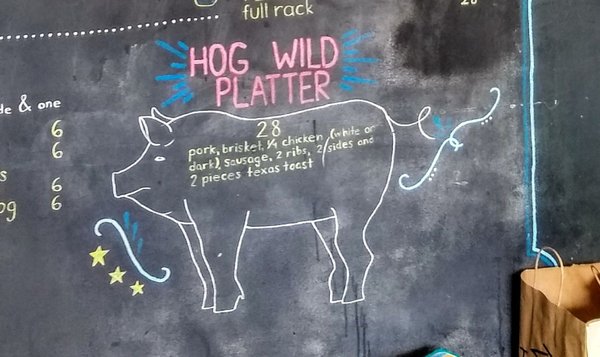 full rack
28
HOG WILD
PLATTER
28
pork, brisket, ¼ chicken (white or
dark), sausage, 2 ribs, 2 sides and
2 pieces texas toast
& one
6
6
6
6